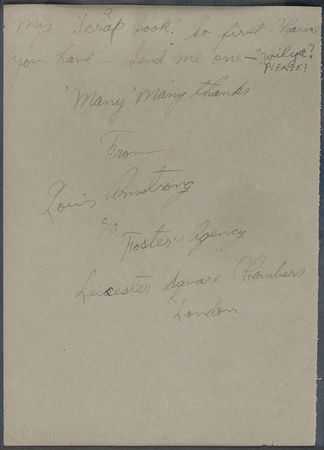 my "Scrap Book." So first chance
you have – Send me one – "wilya?
PLEASE?
'Many' Many thanks
From
Louis Armstrong
c/o
Foster's Agency
Leicester Square Chambers
London